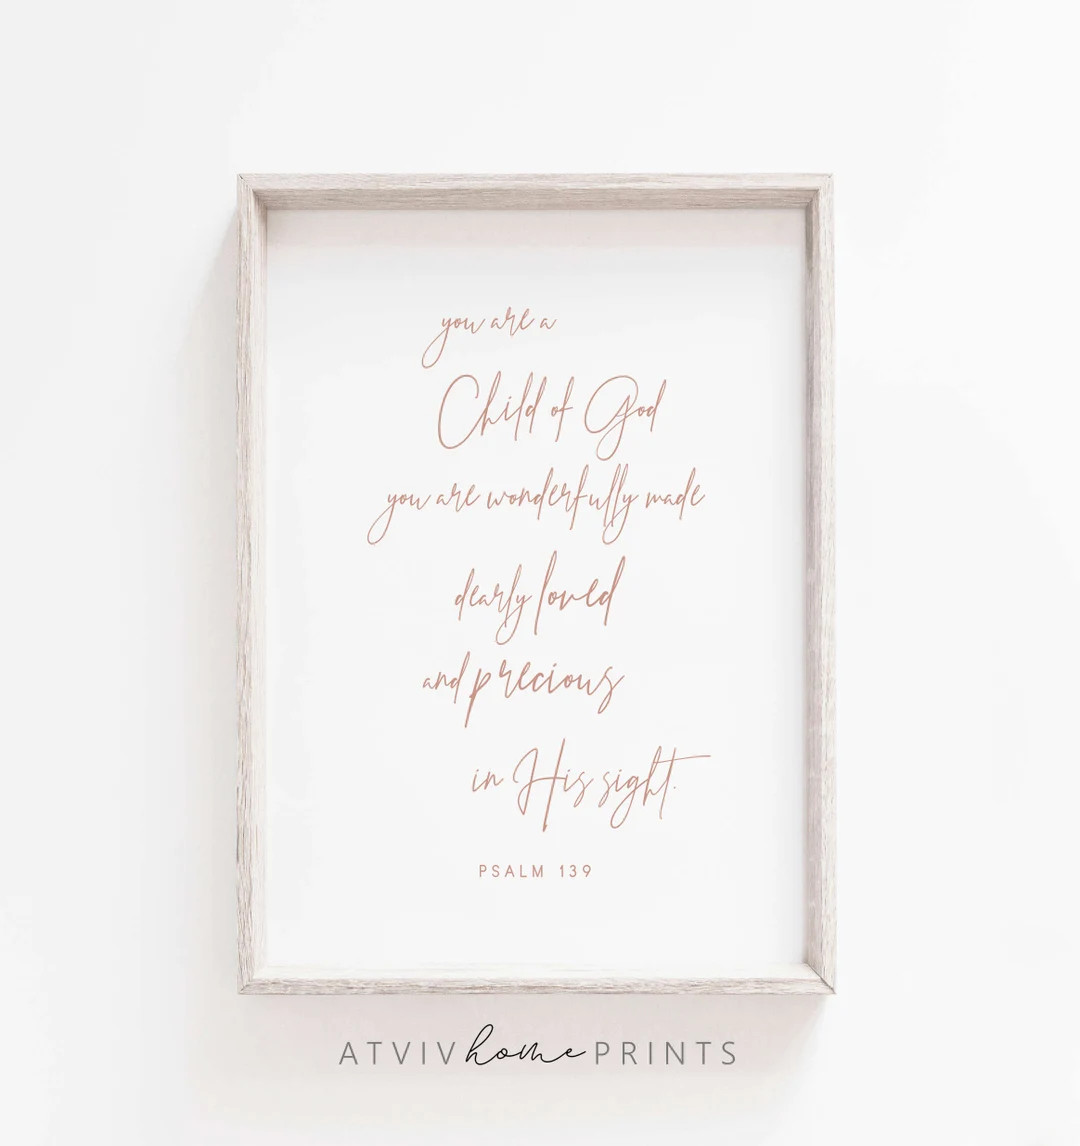 you are a
Child of God
you are wonderfully made
dearly loved
and precious
in His sight.
PSALM 139
ATVIV home PRINTS